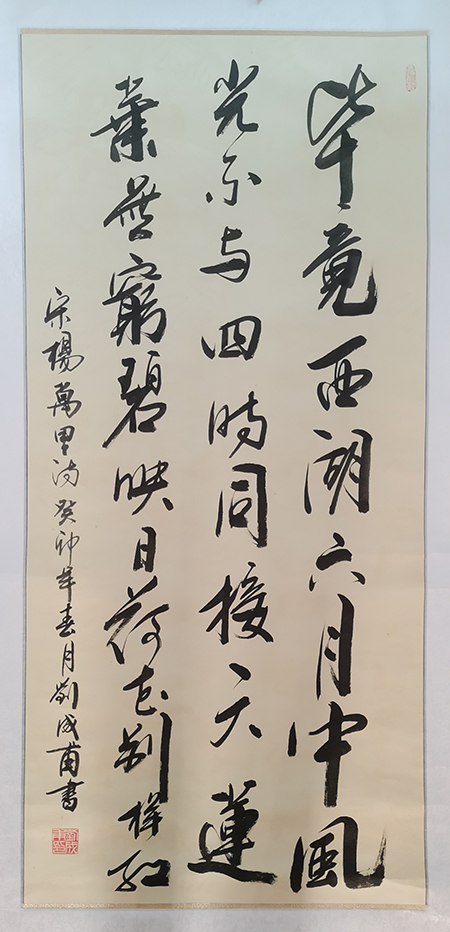 毕竟西湖六月中風
光不与四時同接天蓮
葉無窮碧映日荷花别樣紅
宋楊萬里詩癸卯年春月劉成甫書